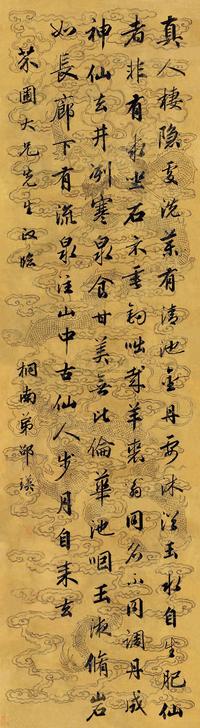 真人棲隱處洗藥有清池金丹要沐浴玉水自生肥仙
者非有求坐石示垂釣咄哉羊裘翁同名不同調丹成
神仙去井冽寒泉食甘美無比倫華池咽玉液脩岩
如長廊下有流泉注山中古仙人步月自来去
茶圃大兄先生政臨
桐南弟邵瑛